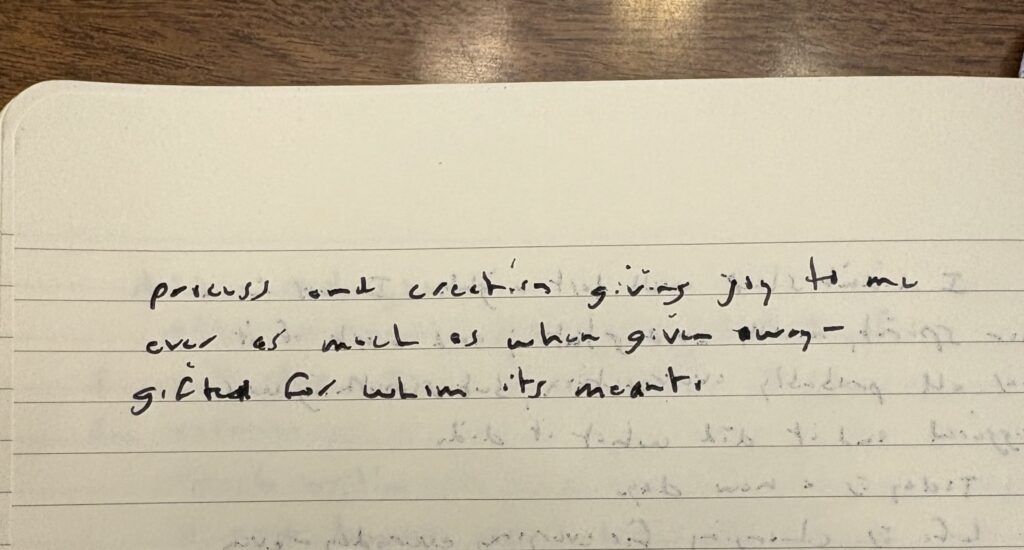 process and creation giving joy to me
ever as much as when given away-
gifted for whom its meant.